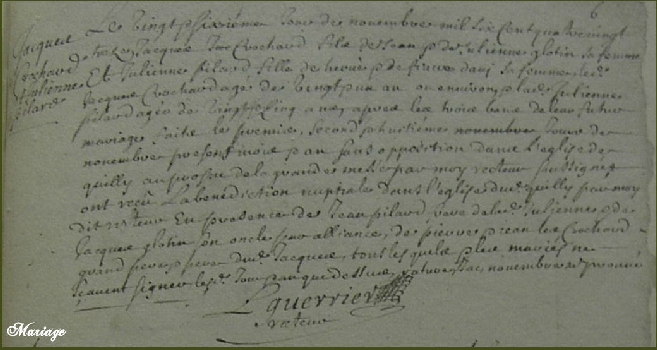 Jacques
Crochard
et Julienne
Pilard
Le vingt sixiéme Jour de novembre mil six cent quatre vingt
treize Jacques Crochard fils de Jean et de Julienne glotin sa femme
Et Julienne pilard fille de et de sa femme led.
Jacques Crochard agé de vingt un an ou environ et lad. Julienne
pilard agée de vingt cinq ans, apres les trois bans de leur futur
mariage faits le premier, second et huitiéme novembre Jour de
novembre present mois et an sans opposition dans l'eglise de
quilly au prosne de la grande messe par moy recteur soussigné
ont reçu La benediction nuptiale dans l'eglise dud. quilly par moy
dit recteur En presence de Jean pilard pere de lad. Julienne et de
Jacques glotin son oncle par alliance, de pierre et Jean les Crochard
grand pere et pere dud. Jacques, tous lesquels et les mariés ne
sçavent signer les Jour et an que dessus novembre
Lguerrier
recteur
Mariage